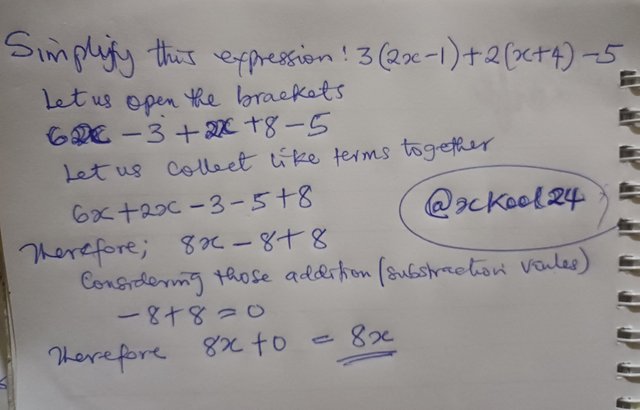 Simplify this expression! 3(2x-1)+2(x+4)-5
Let us open the brackets
6x - 3 + 2x + 8 - 5
Let us collect like terms together
6x+2x-3-5+8
@xkool24
Therefore; 8x-8+8
Considering those addition (substraction values)
-8+8=0
Therefore 8x+0 = 8x